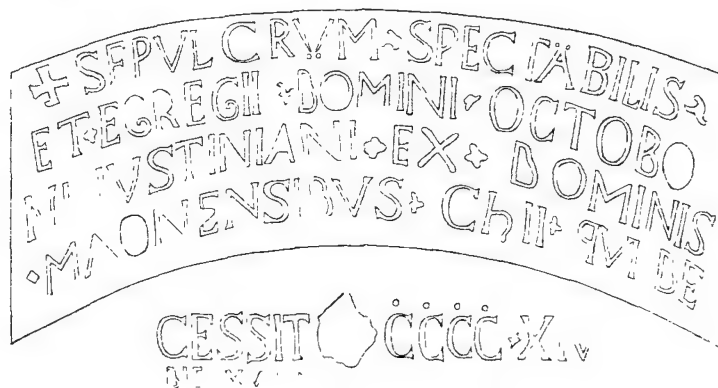 ✠ SEPVLCRVM SPECTABILIS
ET EGREGII DOMINI OCTOBO
NI IVSTINIANI EX DOMINIS
MAONENSIBVS CħII QVI DE
CESSIT CCCC X
DIE